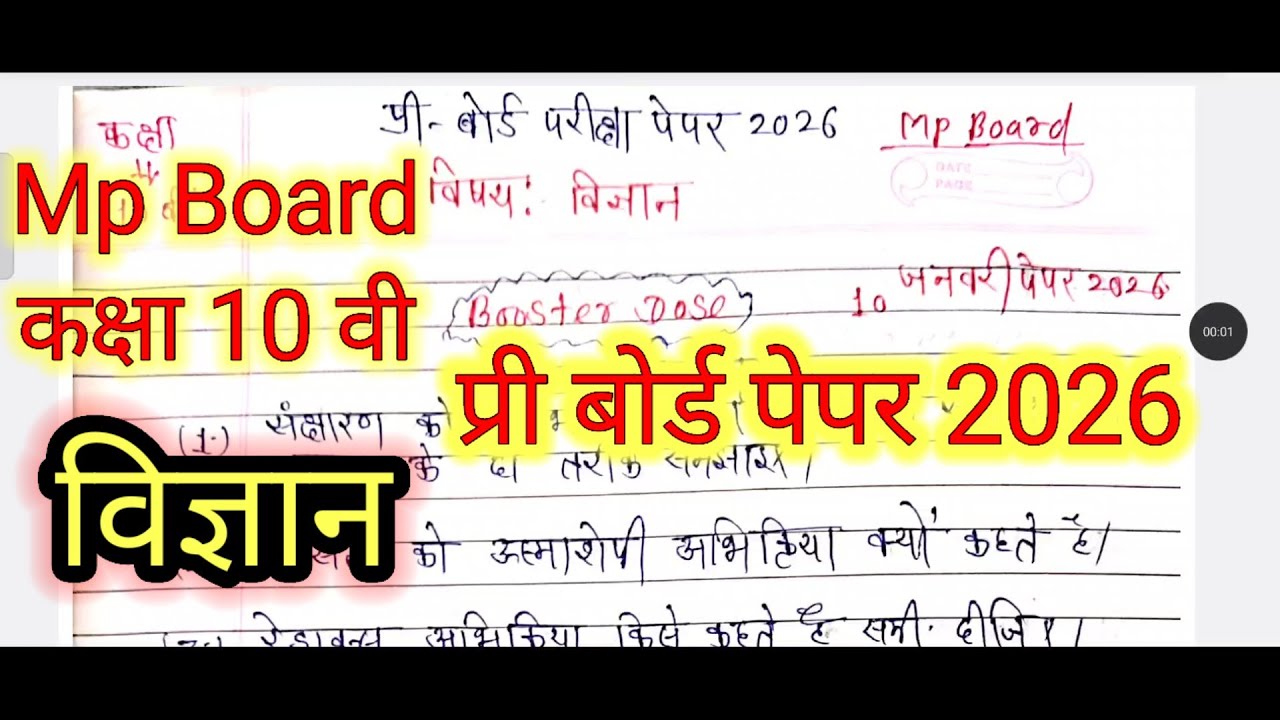 कक्षा प्री-बोर्ड परीक्षा पेपर 2026 Mp Board
DATE
PAGE
विषय: विज्ञान
Mp Board
कक्षा 10 वी
Booster Dose
10 जनवरी पेपर 2026
00:01
प्री बोर्ड पेपर 2026
(1.) संक्षारण को
के दो तरीके समझाइए।
विज्ञान
को ऊष्माशोषी अभिक्रिया क्यों कहते है।
रेडाक्स अभिक्रिया किसे कहते है समी. दीजिए।